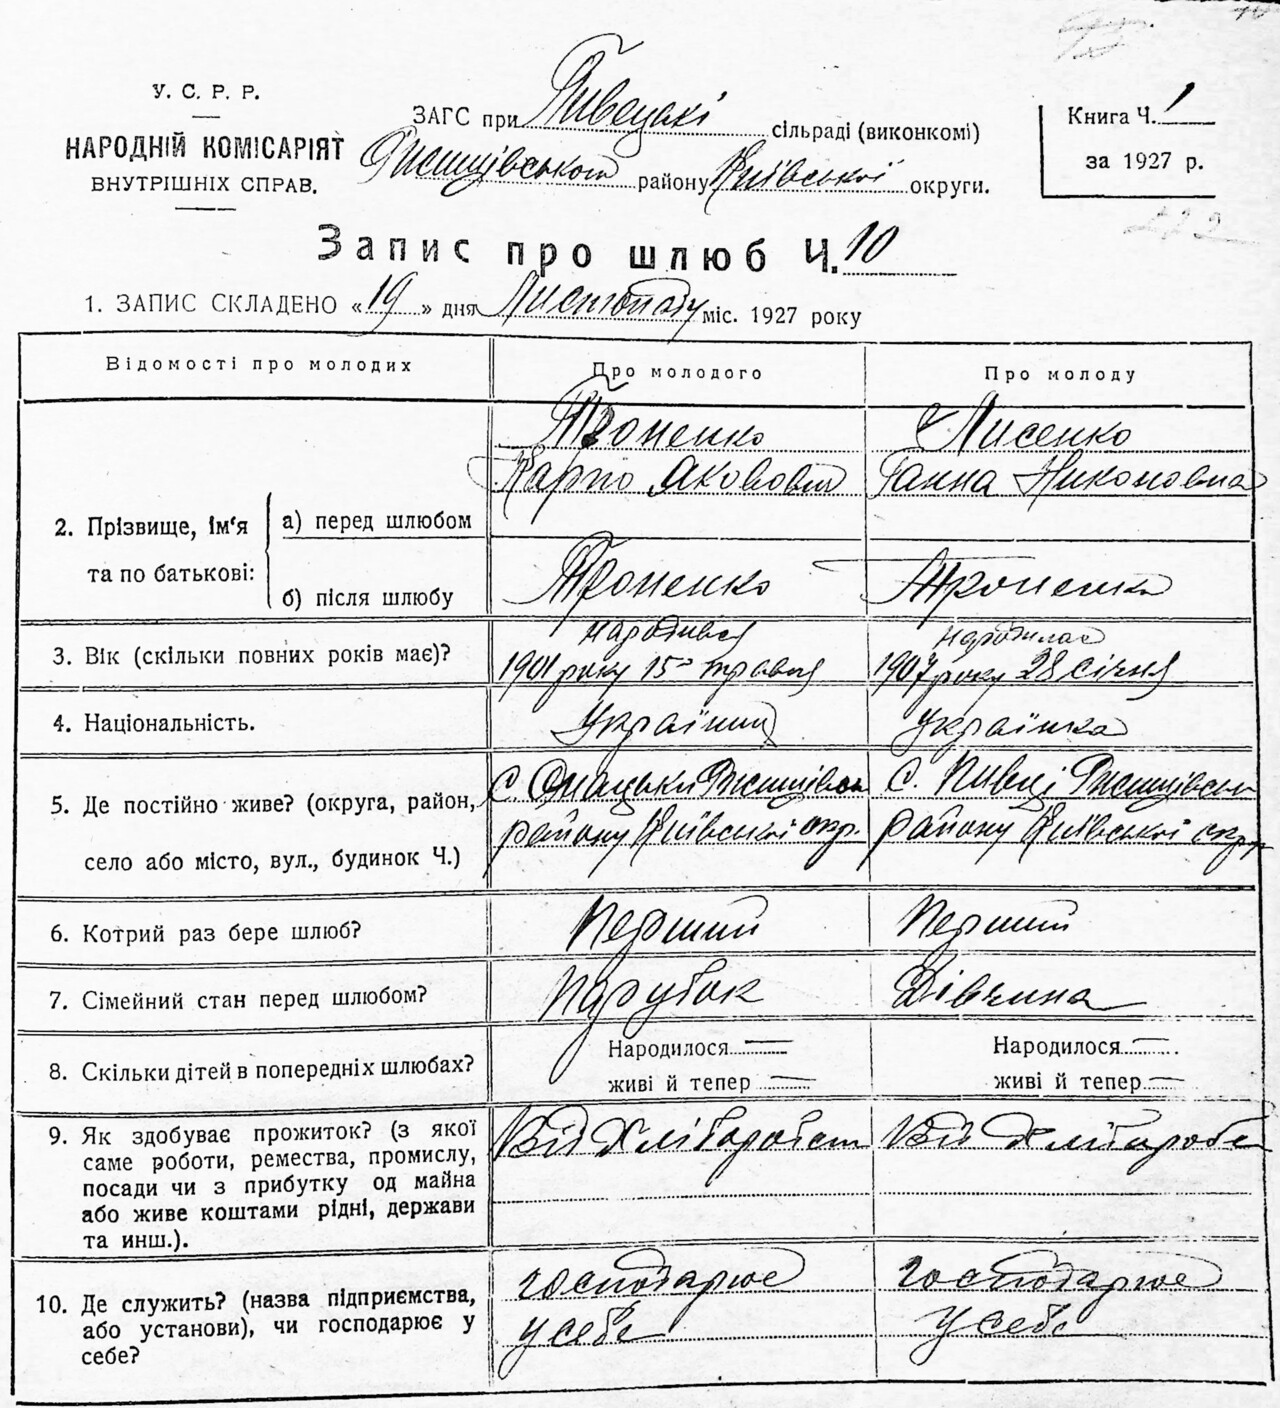 У. С. Р. Р.
НАРОДНІЙ КОМІСАРІЯТ
ВНУТРІШНІХ СПРАВ.
ЗАГС при Пивецькі сільраді (виконкомі)
Ржищівського району Київської округи.
Книга Ч. 1
за 1927 р.
Запис про шлюб Ч. 10
1. ЗАПИС СКЛАДЕНО «19» дня Листопаду міс. 1927 року
Відомості про молодих
Про молодого
Про молоду
2. Прізвище, ім‘я
та по батькові:
а) перед шлюбом
Троненко
Карпо Якович
Лисенко
Ганна Никоновна
б) після шлюбу
Троненко
Троненко
3. Вік (скільки повних років має)?
народився
1901 року 15го травня
народилась
1907 року 28 січня
4. Національність.
Українець
Українка
5. Де постійно живе? (округа, район,
село або місто, вул., будинок Ч.)
С. Ржищівськ
району Київської окр.
С. Півці Ржищівськ
району Київської окр.
6. Котрий раз бере шлюб?
Перший
Перший
7. Сімейний стан перед шлюбом?
Парубок
Дівчина
8. Скільки дітей в попередніх шлюбах?
Народилося —
живі й тепер —
Народилося —
живі й тепер —
9. Як здобуває прожиток? (з якої
саме роботи, ремества, промислу,
посади чи з прибутку од майна
або живе коштами рідні, держави
та инш.).
Від Хліборобст
Від Хліборобст
10. Де служить? (назва підприємства,
або установи), чи господарює у
себе?
господарює
у себе
господарює
у себе